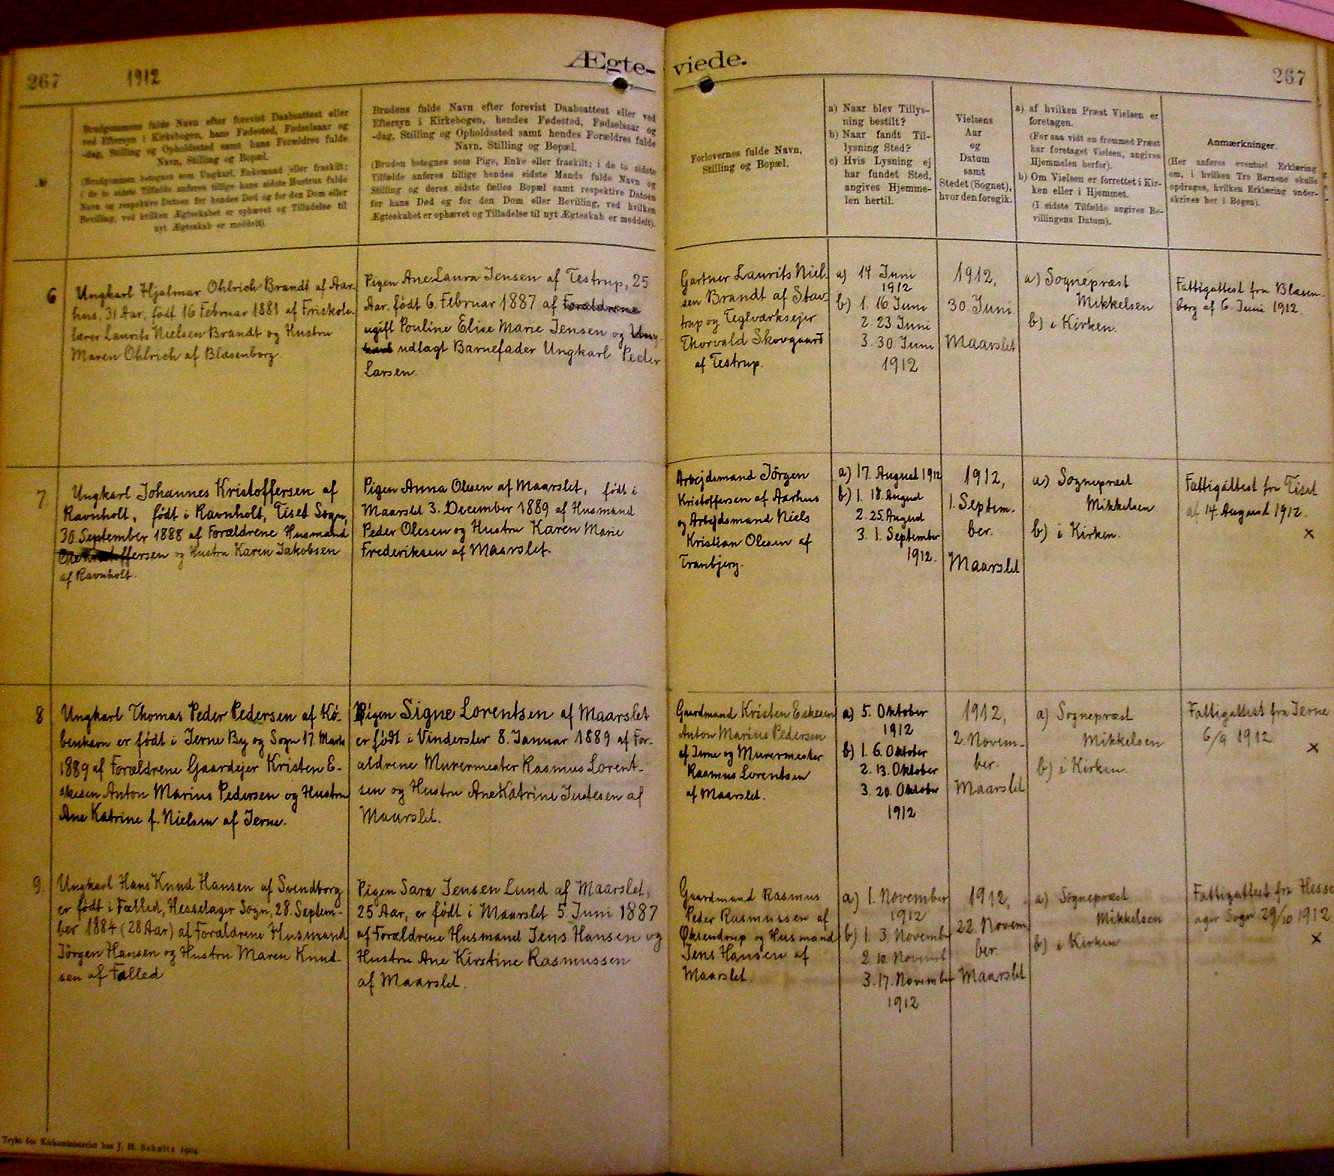 267
1912
Ægte-
viede.
267
Brudgommens fulde Navn efter forevist Daabsattest eller
ved Eftersyn i Kirkebogen, hans Fødested, Fødselsaar og
-dag, Stilling og Opholdssted samt hans Forældres fulde
Navn, Stilling og Bopæl.
(Brudgommen betegnes som Ungkarl, Enkemand eller fraskilt;
i de to sidste Tilfælde anføres tillige hans sidste Hustrus fulde
Navn og respektive Datoen for hendes Død og for den Dom eller
Bevilling, ved hvilken Ægteskabet er ophævet og Tilladelse til
nyt Ægteskab er meddelt).
Brudens fulde Navn efter forevist Daabsattest eller ved
Eftersyn i Kirkebogen, hendes Fødested, Fødselsaar og
-dag, Stilling og Opholdssted samt hendes Forældres fulde
Navn, Stilling og Bopæl.
(Bruden betegnes som Pige, Enke eller fraskilt; i de to sidste
Tilfælde anføres tillige hendes sidste Mands fulde Navn og
Stilling og deres sidste fælles Bopæl samt respektive Datoen
for hans Død og for den Dom eller Bevilling, ved hvilken
Ægteskabet er ophævet og Tilladelse til nyt Ægteskab er meddelt).
Forlovernes fulde Navn,
Stilling og Bopæl.
a) Naar blev Tillys-
ning bestilt?
b) Naar fandt Til-
lysning Sted?
c) Hvis Lysning ej
har fundet Sted,
angives Hjemme-
len hertil.
Vielsens
Aar
og
Datum
samt
Stedet (Sognet),
hvor den foregik.
a) af hvilken Præst Vielsen er
foretagen.
(For saa vidt en fremmed Præst
har foretaget Vielsen, angives
Hjemmelen herfor).
b) Om Vielsen er forrettet i Kir-
ken eller i Hjemmet.
(I sidste Tilfælde angives Be-
villingens Datum).
Anmærkninger.
(Her anføres eventuel Erklæring
om, i hvilken Tro Børnene skulle
opdrages, hvilken Erklæring under-
skrives her i Bogen).
6
Ungkarl Hjalmar Ohlrich Brandt af Aar-
hus, 31 Aar, født 16 Februar 1881 af Friskole-
lærer Laurits Nielsen Brandt og Hustru
Maren Ohlrich af Blasenborg
Pigen Ane Laura Jensen af Testrup, 25
Aar. født 6. Februar 1887 af Forældrene
ugift Pouline Elise Marie Jensen og Ung-
karl udlagt Barnefader Ungkarl Peder
Larsen.
Gartner Laurits Niel-
sen Brandt af Stav-
trup og Teglværksejer
Thorvald Skovgaard
af Testrup.
a) 14 Juni
1912
b) 1. 16 Juni
2. 23 Juni
3. 30. Juni
1912
1912,
30 Juni
Maarslet
a) Sognepræst
Mikkelsen
b) i Kirken.
Fattigattest fra Blasen-
borg af 6. Juni 1912.
7
Ungkarl Johannes Kristoffersen af
Ravnholt, født i Ravnholt, Tiset Sogn,
30. September 1888 af Forældrene Husmand
Kristoffersen og Hustru Karen Jakobsen
af Ravnholt.
Pigen Anna Olesen af Maarslet, født i
Maarslet 3. December 1889 af Husmand
Peder Olesen og Hustru Karen Marie
Frederiksen af Maarslet.
Arbejdsmand Jörgen
Kristoffersen af Aarhus
og Arbejdsmand Niels
Kristian Olesen af
Tranbjerg.
a) 17. August 1912
b) 1. 18. August
2. 25. August
3. 1. September
1912.
1912,
1. Septem-
ber.
Maarslet
a) Sognepræst
Mikkelsen
b) i Kirken.
Fattigattest fra Tiset
af 14. August 1912.
×
8
Ungkarl Thomas Peder Pedersen af Kö-
benhavn er født i Jerne By og Sogn 17. Marts
1889 af Forældrene Gaardejer Kristen E-
skesen Anton Marius Pedersen og Hustru
Ane Katrine f. Nielsen af Jerne.
Pigen Signe Lorentsen af Maarslet
er født i Vinderslev 8. Januar 1889 af For-
ældrene Murermester Rasmus Lorent-
sen og Hustru Ane Katrine Justesen af
Maarslet.
Gaardmand Kristen Eskesen
Anton Marius Pedersen
af Jerne og Murermester
Rasmus Lorentsen
af Maarslet.
a) 5. Oktober
1912
b) 1. 6. Oktober
2. 13. Oktober
3. 20. Oktober
1912
1912,
2. Novem-
ber.
Maarslet
a) Sognepræst
Mikkelsen
b) i Kirken
Fattigattest fra Jerne
6/9 1912
×
9.
Ungkarl Hans Knud Hansen af Svendborg
er født i Fælled, Hesselager Sogn, 28. Septem-
ber 1884 (28 Aar) af Forældrene Husmand
Jörgen Hansen og Hustru Maren Knud-
sen af Fælled
Pigen Sara Jensen Lund af Maarslet,
25 Aar, er født i Maarslet 5 Juni 1887
af Forældrene Husmand Jens Hansen og
Hustru Ane Kirstine Rasmussen
af Maarslet.
Gaardmand Rasmus
Peder Rasmussen af
Øksendrup og Husmand
Jens Hansen af
Maarslet.
a) 1. November
1912
b) 1. 3. November
2. 10. Novemb
3. 17. November
1912
1912,
22. Novem-
ber.
Maarslet
a) Sognepræst
Mikkelsen
b) i Kirken
Fattigattest fra Hessel-
ager Sogn 29/10 1912
×
Trykt for Kirkeministeriet hos J. H. Schultz 1904.